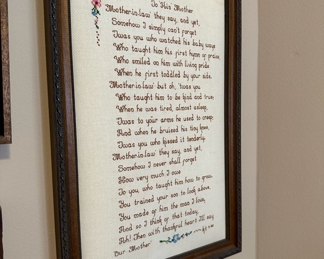 To His Mother
"Mother-in-law" they say, and yet,
Somehow I simply can't forget
'Twas you who watched his baby ways
Who taught him his first hymn of praise,
Who smiled on him with loving pride
When he first toddled by your side.
"Mother-in-law" but oh, 'twas you
Who taught him to be kind and true;
When he was tired, almost asleep,
'Twas to your arms he used to creep;
And when he bruised his tiny knee,
'Twas you who kissed it tenderly.
"Mother-in-law" they say, and yet,
Somehow I never shall forget
How very much I owe
To you, who taught him how to grow.
You trained your son to look above,
You made of him the man I love,
And so I think of that today,
Ah! Then with thankful heart I'll say
"Our Mother"